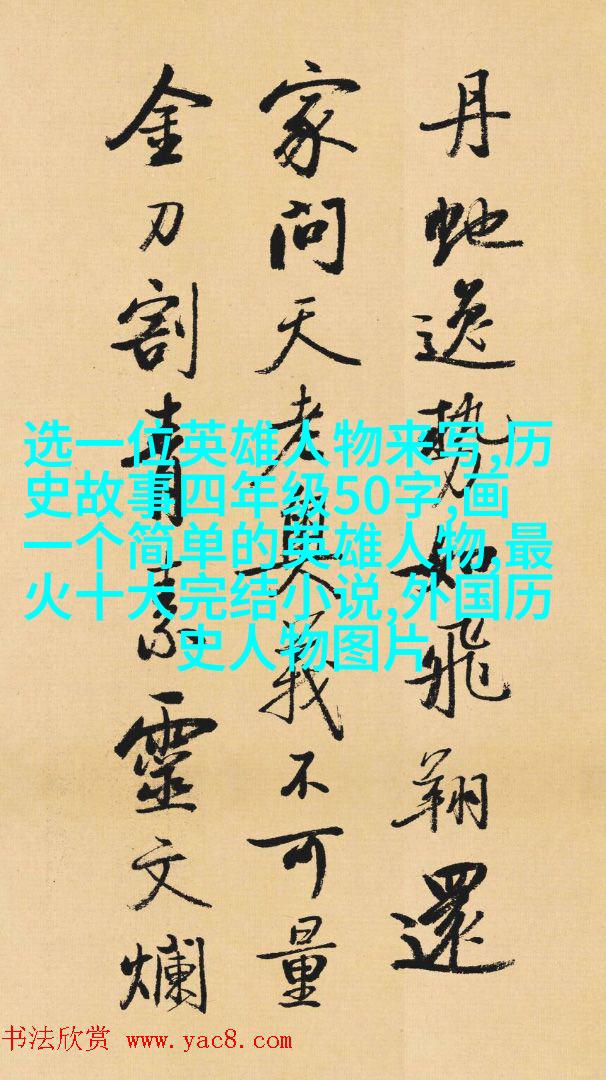 丹虵逸勢如飛翔還
家問天老奧義不可量
金刀割青素靈文爛
选一位英雄人物来写,历
史故事四年级50字,画
一个简单的英雄人物,最
火十大完结小说,外国历
史人物图片
书法欣赏 www.yac8.com